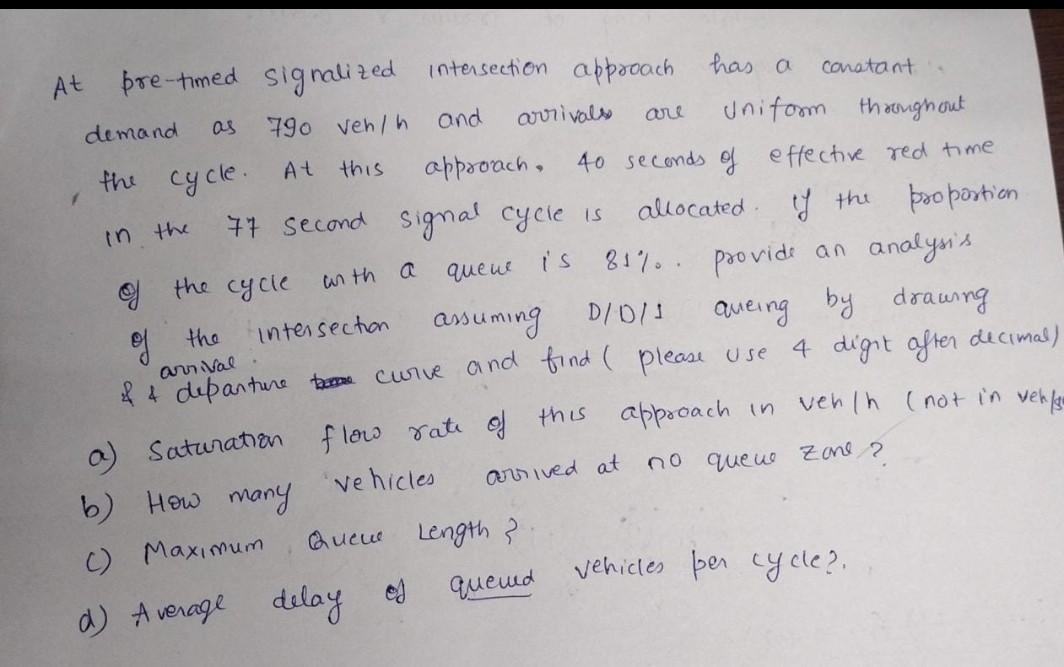 At pre-timed signalized intersection approach has a constant
demand as 790 veh/h and arrivals are Uniform throughout
the cycle. At this approach, 40 seconds of effective red time
in the 77 second signal cycle is allocated. if the proportion
of the cycle with a queue is 81%. provide an analysis
of the intersection assuming D/D/1 queing by drawing
arrival
& departure curve and find ( please use 4 digit after decimal)
a) Saturation flow rate of this approach in veh/h (not in veh/
b) How many vehicles arrived at no queue zone?
c) Maximum Queue Length?
d) Average delay of queued vehicles per cycle?.